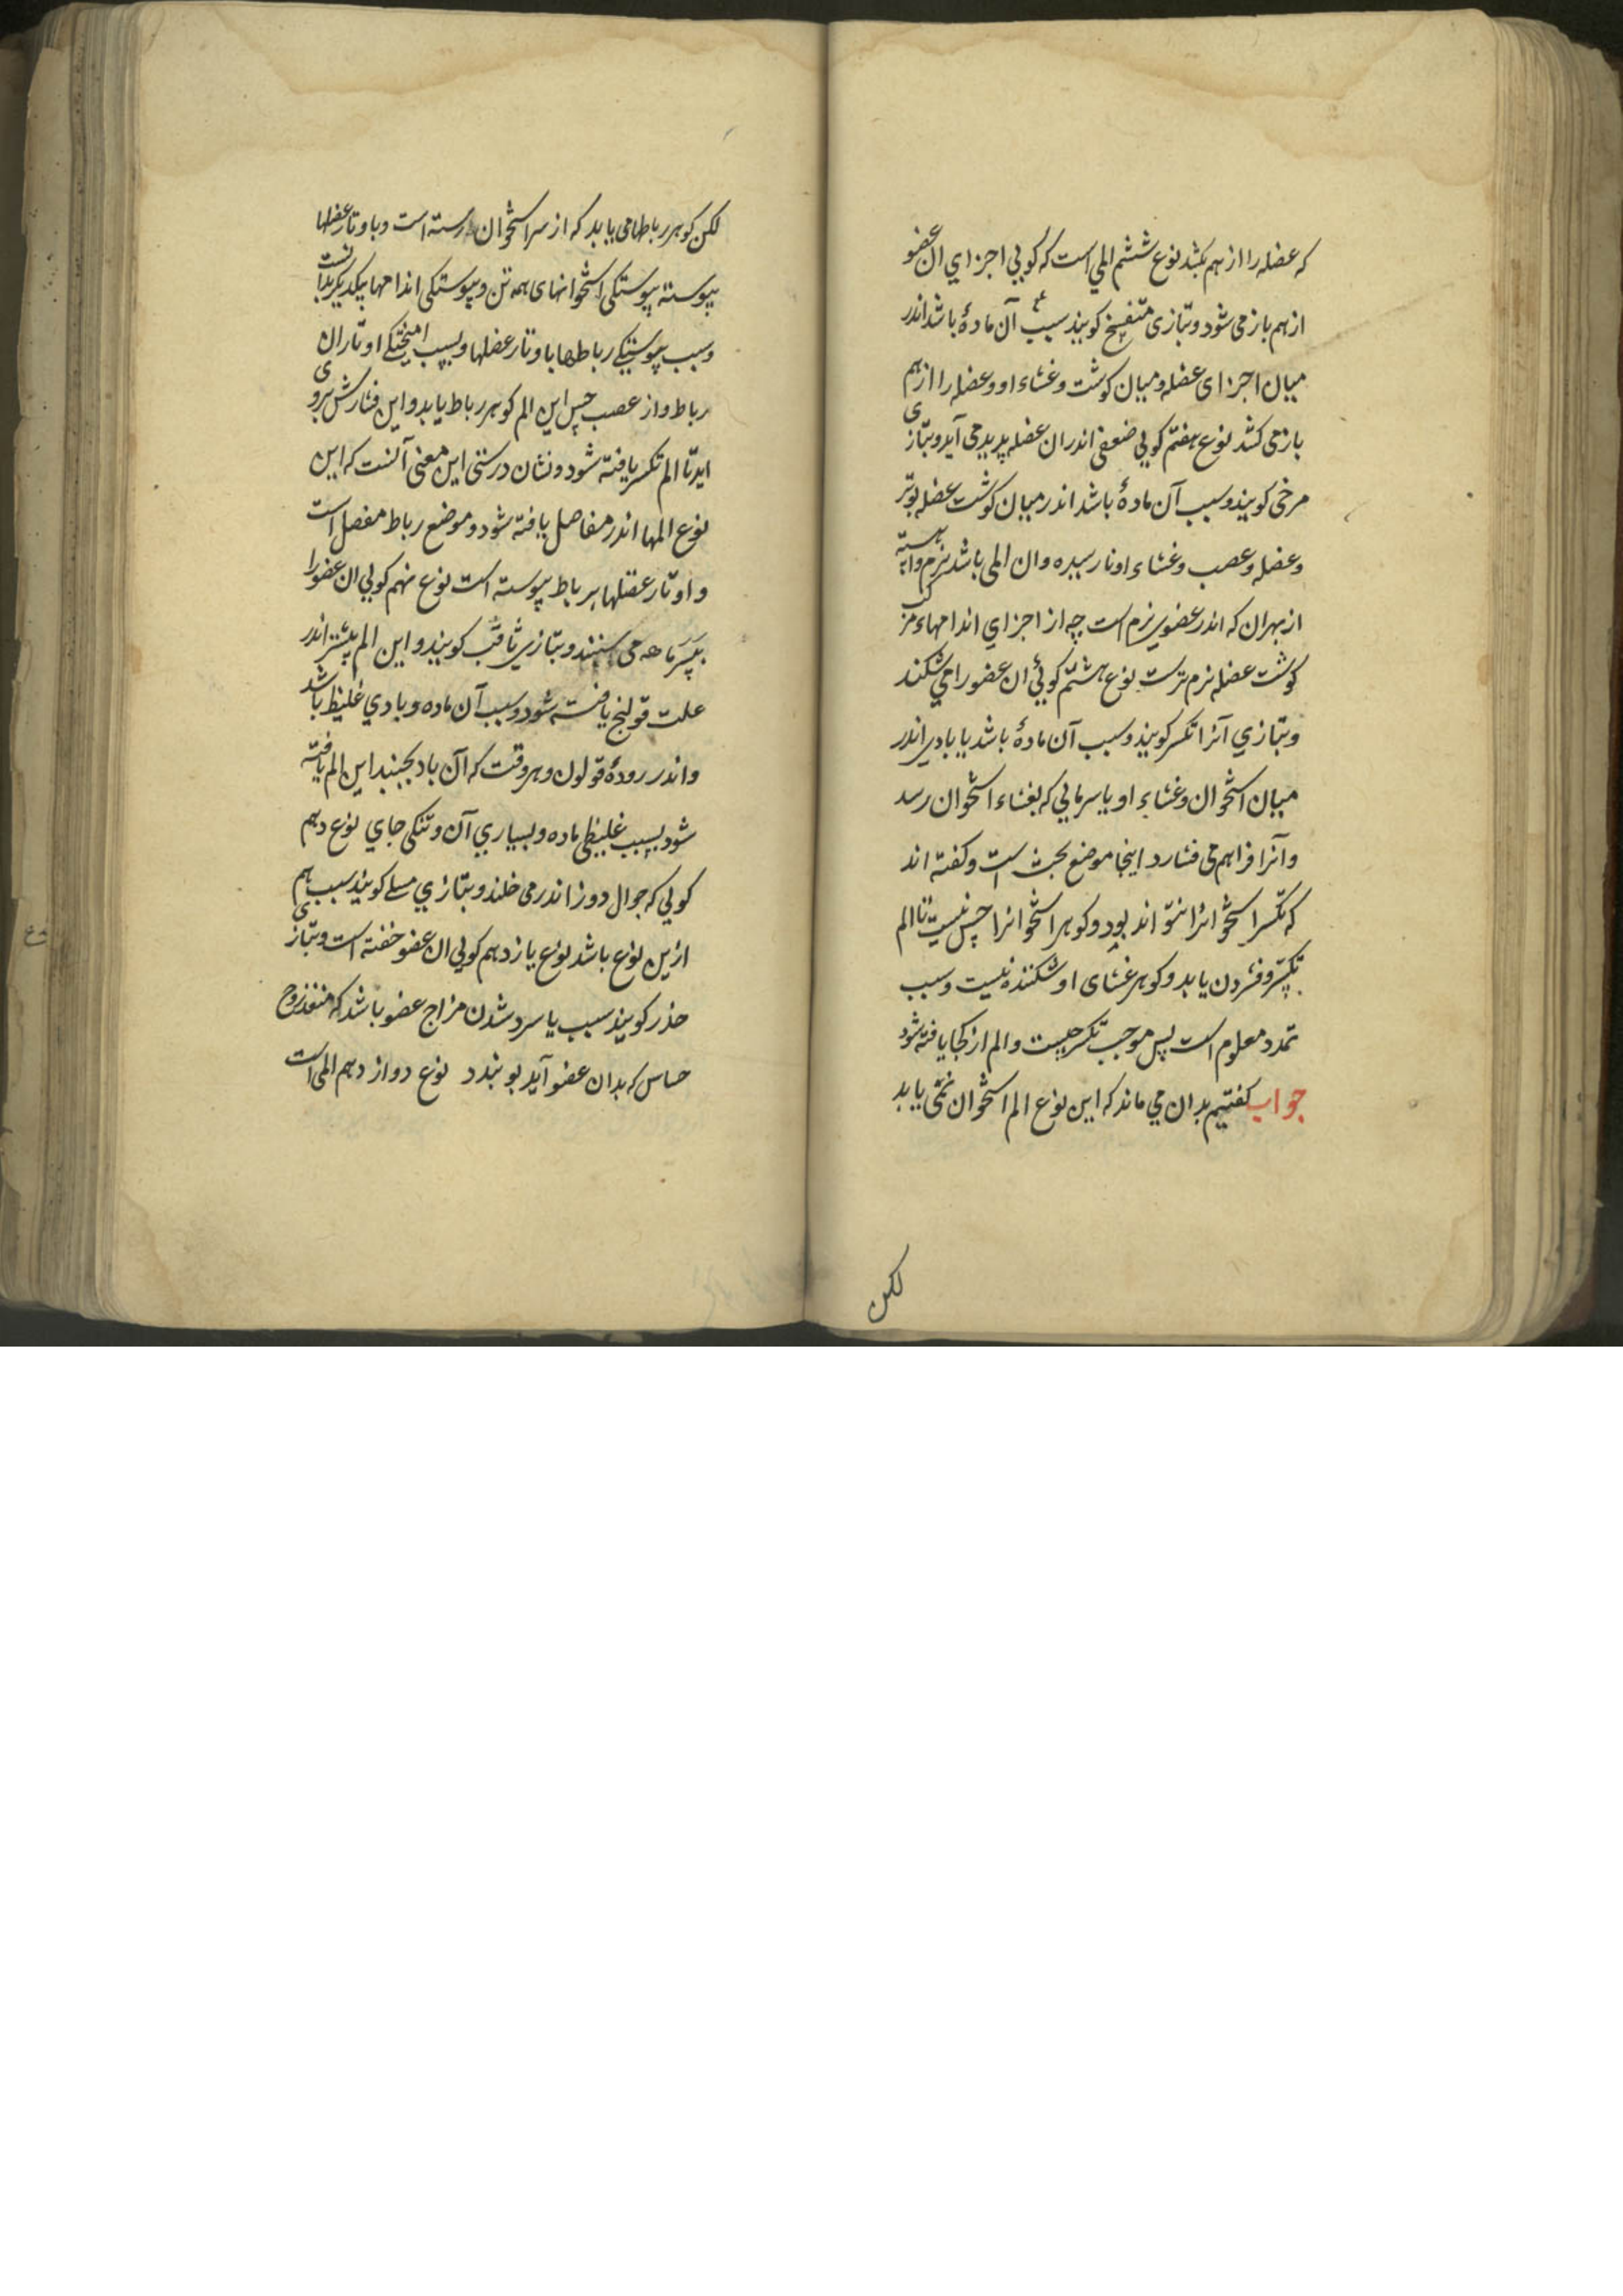 که عضله را از هم بکشد نوع ششم المی است که کویی اجزای ان عضو
از هم باز می شود و بتازی متفسخ کویند سبب آن مادهٔ باشد اندر
میان اجزای عضله و میان کوشت و غشاء او و عضله را از هم
باز می کشد نوع هفتم کویی ضعفی اندران عضله پدید می آید و بتازی
مرخی کویند و سبب آن مادهٔ باشد اندر میان کوشت عضله بوتر
و عضله و عصب و غشاء او نارسیده و ان المی باشد نرم و اهسته
از بهران که اندر عضوی نرم است چه از اجزای اندامهاء مرکب
کوشت عضله نرم ترست نوع هشتم کویی ان عضو را می شکند
و بتازی آنرا تکسر کویند و سبب آن مادهٔ باشد یا بادی اندر
میان استخوان و غشاء او یا سرمایی که بغشاء استخوان رسد
و آنرا فراهم می فشارد اینجا موضع بحث است و کفته اند
که تکسر استخوانرا نتواند بود و کوهر استخوانرا حس نیست تا الم
تکسر و فشردن یابد و کوهر غشای او شکننده نیست و سبب
تمدد معلوم است پس موجب تکسر چیست و الم از کجا یافته شود
جواب کفتیم بدان می ماند که این نوع الم استخوان نمی یابد
لکن
لکن کوهر رباطها می یابد که از سر استخوان رسته است و باوتار عضلها
پیوسته پیوستکی استخوانهای همه تن و پیوستکی اندامها بیکدیکر بدانست
و سبب پیوستیکی رباطها باوتار عضلها و بسبب امیختکی اوتاران
رباط و از عصب حس این الم کوهر رباط یابد و این فشارش بروی
اید تا الم تکسر یافته شود و نشان درستی این معنی آنست که این
نوع المها اندر مفاصل یافته شود و موضع رباط مفصل است
و اوتار عضلها برباط پیوسته است نوع نهم کویی ان عضو را
بپرماهه می سنبند و بتازی ثاقب کویند و این الم بیشتر اندر
علت قولنج یافته شود و سبب آن ماده و بادی غلیظ باشد
و اندر رودهٔ قولون و هر وقت که آن باد بجنبد این الم یافته
شود بسبب غلیظی ماده و بسیاری آن و تنکی جای نوع دهم
کویی که جوال دوز اندر می خلند و بتازی مسلے کویند سبب هم
ازین نوع باشد نوع یازدهم کویی ان عضو خفته است و بتازی
خدر کویند سبب یا سرد شدن مزاج عضو باشد که منفذ روح
حساس که بدان عضو آید بو بندد نوع دوازدهم المی است